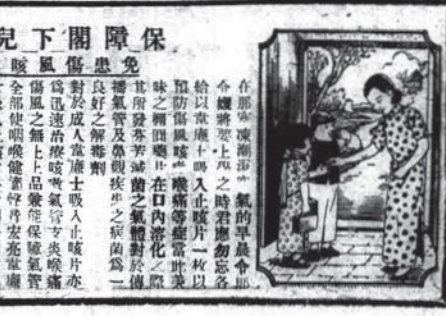 保障閣下兒
免患傷風咳
在那寒凍潮濕氣的早晨令郎
令嬡將要上學之時君應勿忘各
給以韋廉士吸入止咳片一枚以
預防傷風咳喉痛等症當此美
味之糖菌藥片在口內溶化之際
其所發芬芳滅菌之氣體對於傳
播氣管及鼻觀疾步之病菌為一
良好之解毒劑
對於成人韋廉士吸入止咳片亦
為迅速治療咳嗽氣管支炎喉痛
傷風之無上上品兼能保障氣管
全部使咽喉健聲音宏亮韋廉